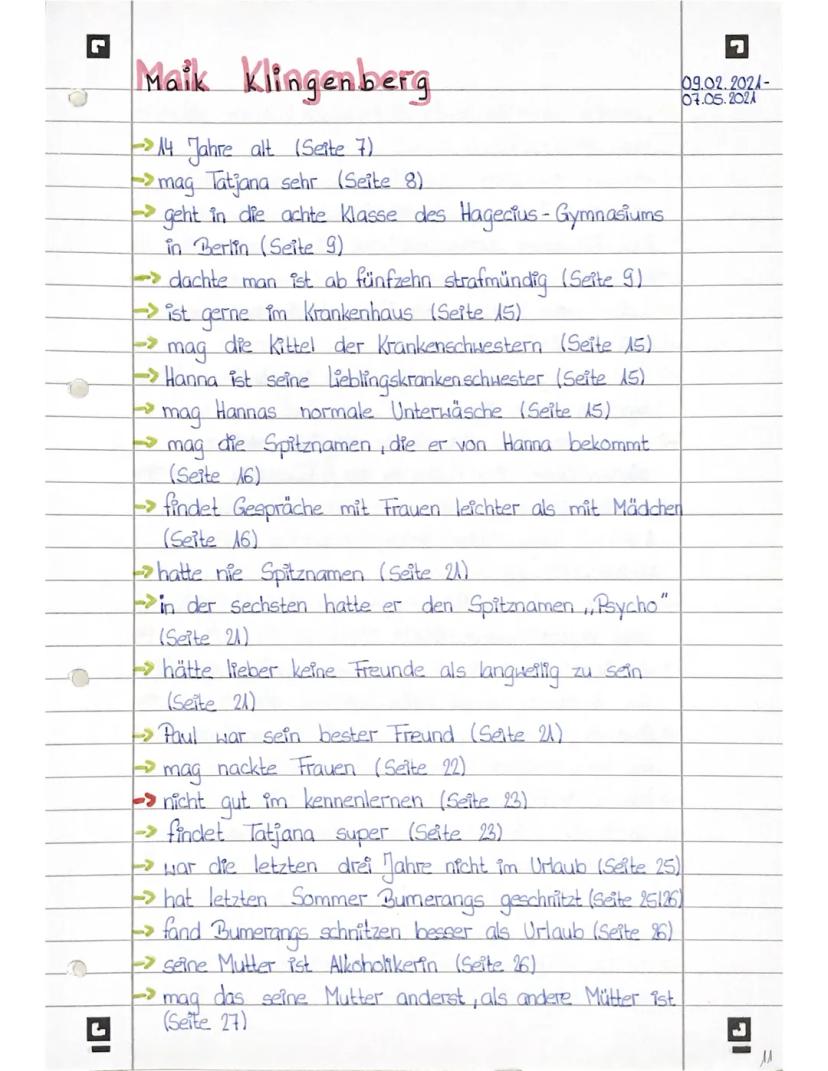 Maik Klingenberg
09.02.2021-
07.05.2021
→ 14 Jahre alt (Seite 7)
→ mag Tatjana sehr (Seite 8)
→ geht in die achte Klasse des Hagecius-Gymnasiums
in Berlin (Seite 9)
→ dachte man ist ab fünfzehn strafmündig (Seite 9)
→ ist gerne im Krankenhaus (Seite 15)
→ mag die Kittel der Krankenschwestern (Seite 15)
→ Hanna ist seine Lieblingskrankenschwester (Seite 15)
→ mag Hannas normale Unterwäsche (Seite 15)
→ mag die Spitznamen, die er von Hanna bekommt
(Seite 16)
→ findet Gespräche mit Frauen leichter als mit Mädchen
(Seite 16)
→ hatte nie Spitznamen (Seite 21)
→ in der sechsten hatte er den Spitznamen „Psycho"
(Seite 21)
→ hätte lieber keine Freunde als langweilig zu sein
(Seite 21)
→ Paul war sein bester Freund (Seite 21)
→ mag nackte Frauen (Seite 22)
→ nicht gut im kennenlernen (Seite 23)
→ findet Tatjana super (Seite 23)
→ war die letzten drei Jahre nicht im Urlaub (Seite 25)
→ hat letzten Sommer Bumerangs geschnitzt (Seite 25|26)
→ fand Bumerangs schnitzen besser als Urlaub (Seite 26)
→ seine Mutter ist Alkoholikerin (Seite 26)
→ mag das seine Mutter anderst, als andere Mütter ist
(Seite 27)
11